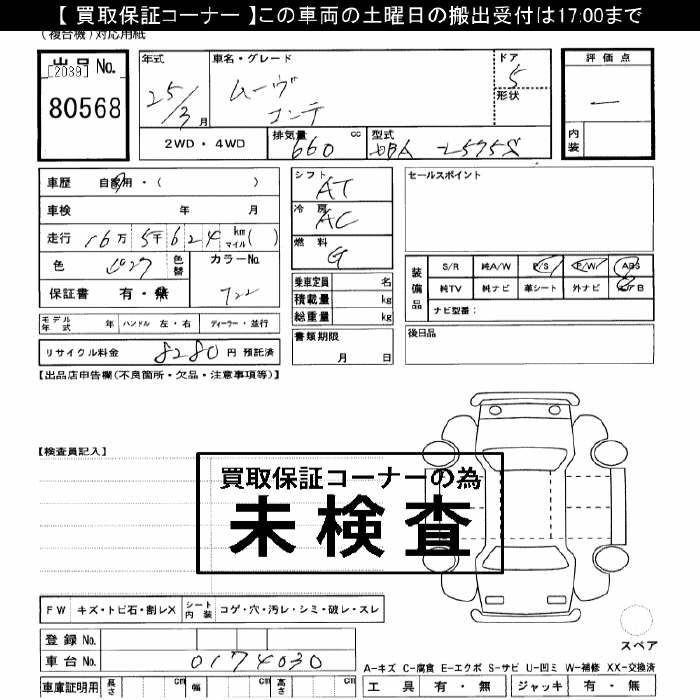 【 買取保証コーナー 】この車両の土曜日の搬出受付は17:00まで
(複合機)対応用紙
出品 No.
[2039]
80568
年式
25/3 月
車名・グレード
ムーヴ
コンテ
ドア
5
形状
評価点
—
内装
2WD・4WD
排気量
660 cc
型式
DBA-L575S
車歴 自家用・( )
車検 年 月
走行 16万 5千 6 2 4 km マイル ( )
色
色替
カラーNo.
722
保証書 有・無
モデル年式 年 ハンドル 左・右 ディーラー・並行
リサイクル料金 8280 円 預託済
シフト
AT
冷房
AC
燃料
G
乗車定員 名
積載量 kg
総重量 kg
書類期限
月 日
セールスポイント
装備品
S/R 純A/W P/S P/W ABS
純TV 純ナビ 革シート 外ナビ エアB
ナビ型番:
後日品
【出品店申告欄(不良箇所・欠品・注意事項等)】
【検査員記入】
買取保証コーナーの為
未検査
FW キズ・トビ石・割レX シート内装 コゲ・穴・汚レ・シミ・破レ・スレ
登録 No.
車台 No. 0174030
車庫証明用 長さ cm 幅 cm 高さ cm
スペア
A-キズ C-腐食 E-エクボ S-サビ U-凹ミ W-補修 XX-交換済
工具 有・無 ジャッキ 有・無